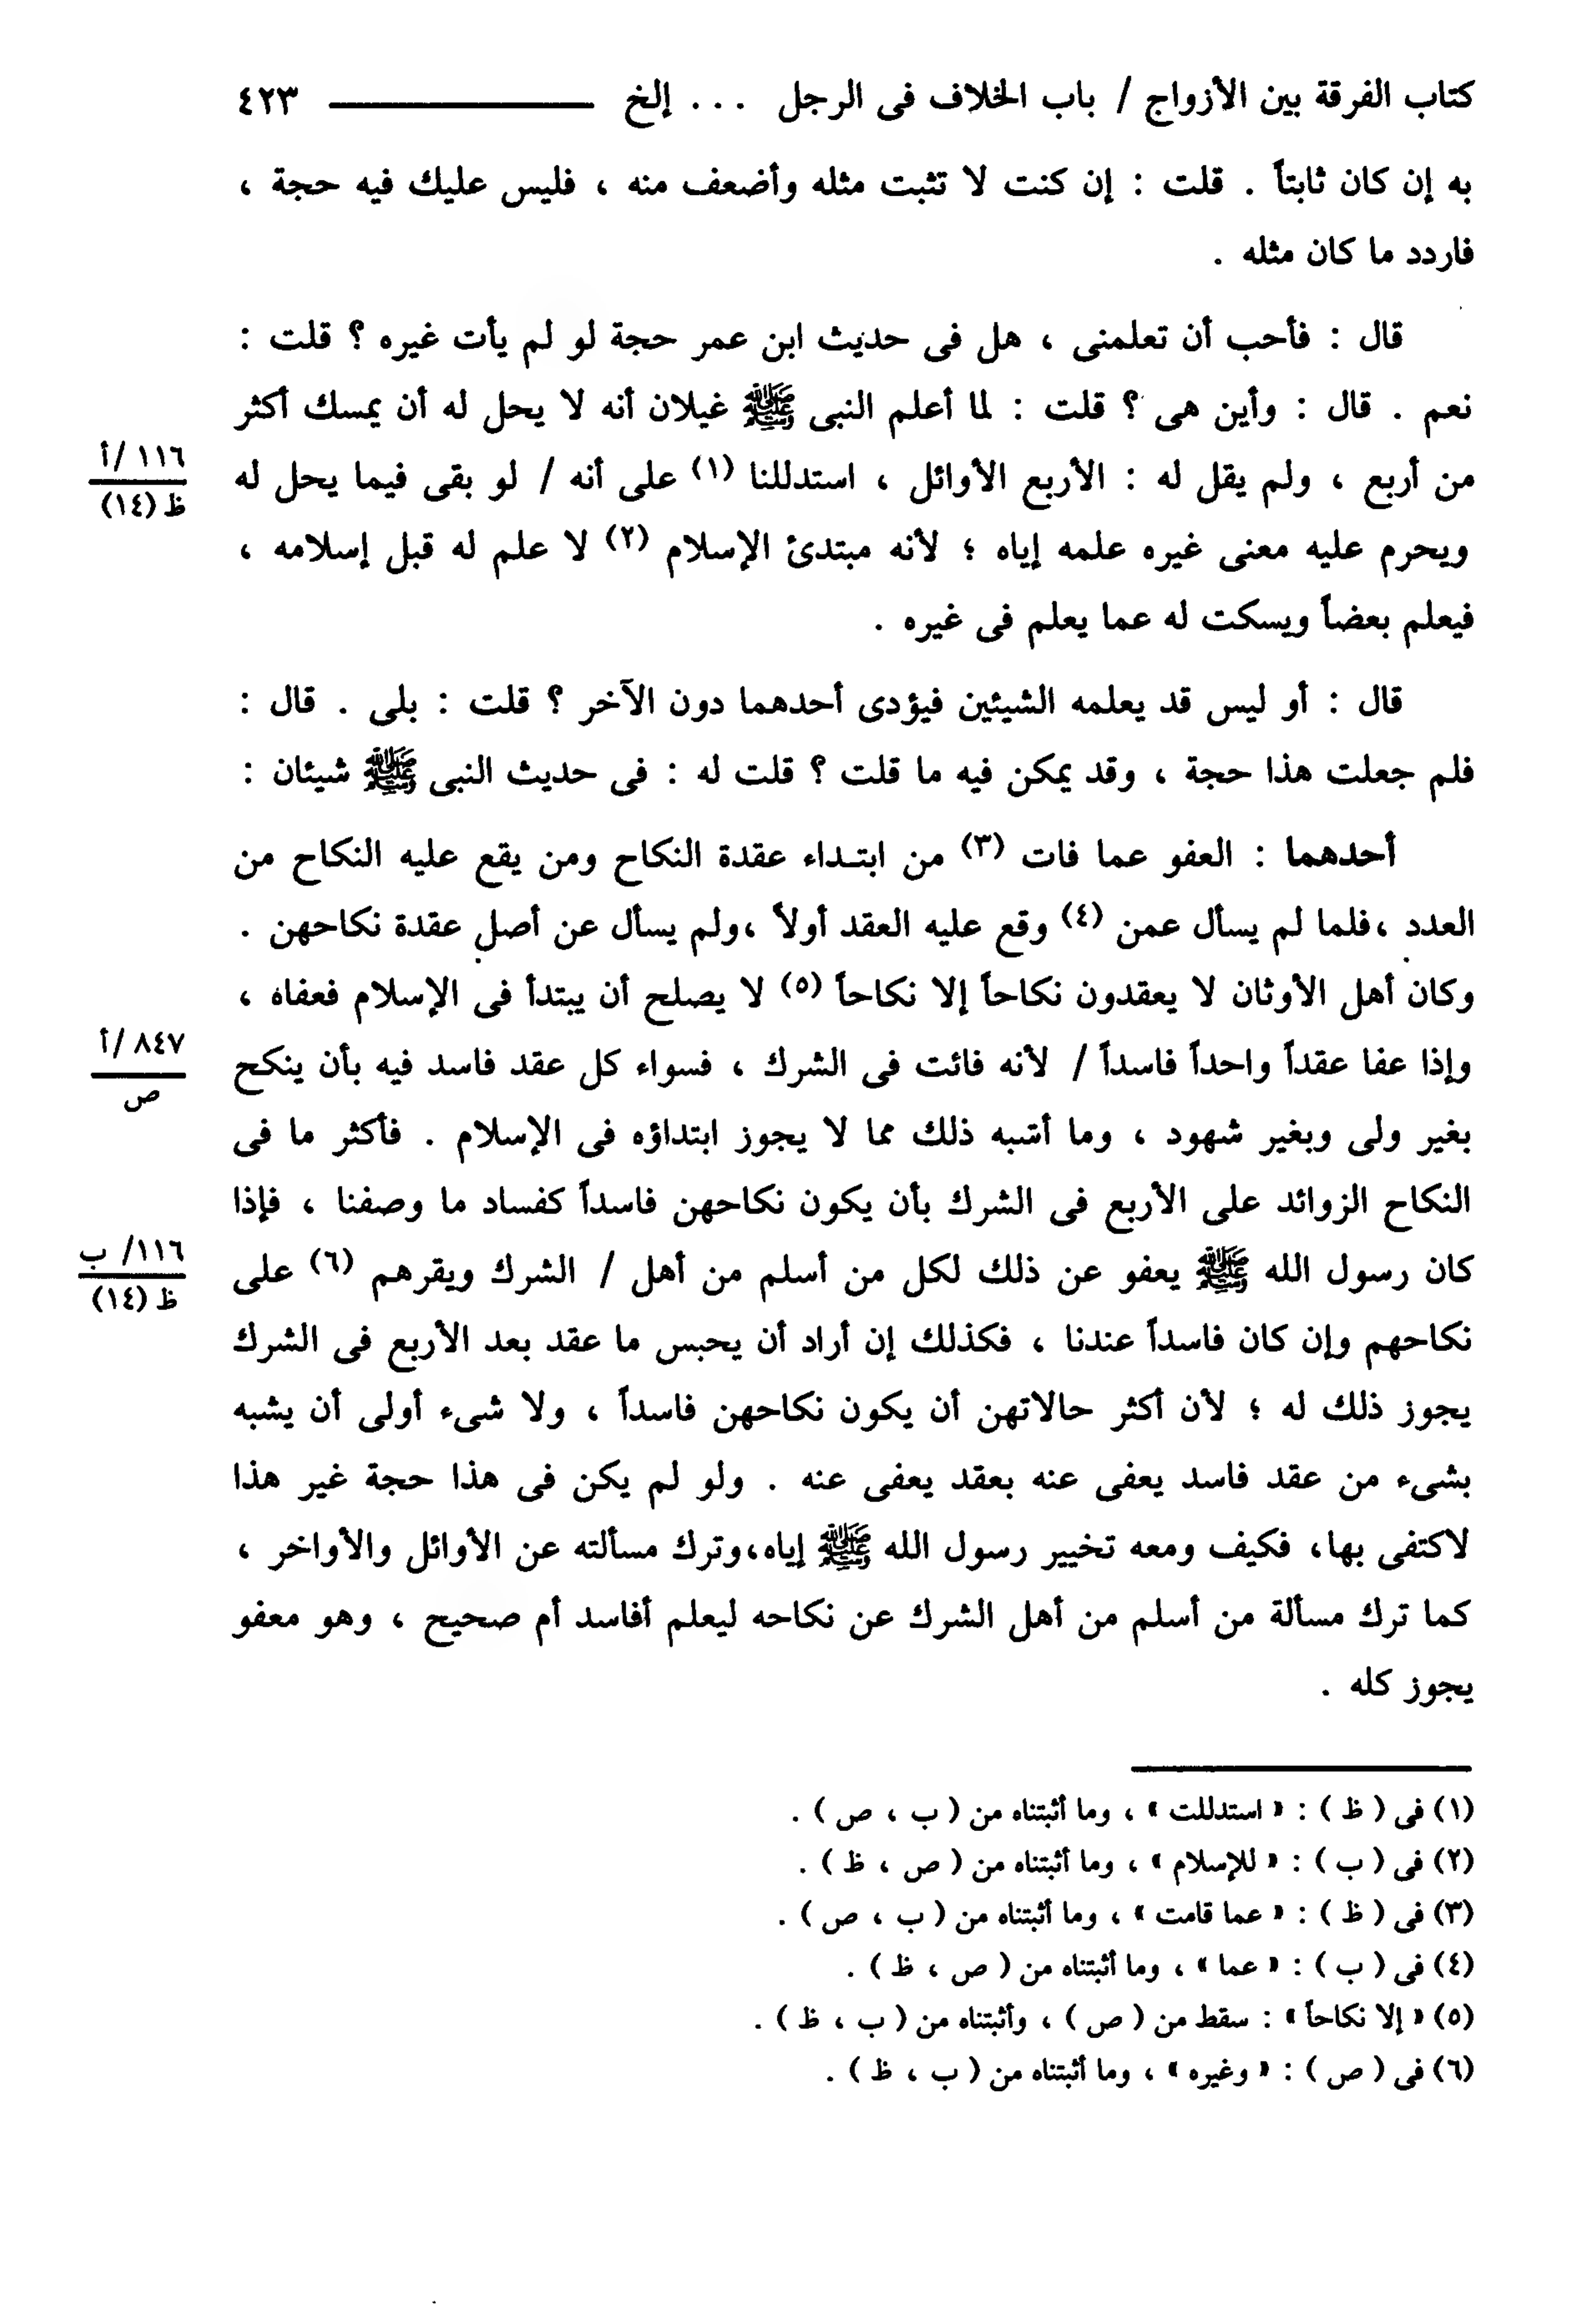 كتاب الفرقة بين الأزواج / باب الخلاف فى الرجل ... إلخ ـــــــــ ٤٢٣
به إن كان ثابتاً . قلت : إن كنت لا تثبت مثله وأضعف منه ، فليس عليك فيه حجة ،
فاردد ما كان مثله .
قال : فأحب أن تعلمنى ، هل فى حديث ابن عمر حجة لو لم يأت غيره ؟ قلت :
نعم . قال : وأين هى ؟ قلت : لما أعلم النبى ﷺ غيلان أنه لا يحل له أن يمسك أكثر
من أربع ، ولم يقل له : الأربع الأوائل ، استدللنا (١) على أنه / لو بقى فيما يحل له
١١٦ /أ
ظ (١٤)
ويحرم عليه معنى غيره علمه إياه ؛ لأنه مبتدئ الإسلام (٢) لا علم له قبل إسلامه ،
فيعلم بعضاً ويسكت له عما يعلم فى غيره .
قال : أو ليس قد يعلمه الشيئين فيؤدى أحدهما دون الآخر ؟ قلت : بلى . قال :
فلم جعلت هذا حجة ، وقد يمكن فيه ما قلت ؟ قلت له : فى حديث النبى ﷺ شيئان :
أحدهما : العفو عما فات (٣) من ابتـداء عقدة النكاح ومن يقع عليه النكاح من
العدد ،فلما لم يسأل عمن (٤) وقع عليه العقد أولاً ،ولم يسأل عن أصل عقدة نكاحهن .
وكان أهل الأوثان لا يعقدون نكاحاً إلا نكاحاً (٥) لا يصلح أن يبتدأ فى الإسلام فعفاه ،
وإذا عفا عقداً واحداً فاسداً / لأنه فائت فى الشرك ، فسواء كل عقد فاسد فيه بأن ينكح
٨٤٧ /أ
ص
بغير ولى وبغير شهود ، وما أشبه ذلك مما لا يجوز ابتداؤه فى الإسلام . فأكثر ما فى
النكاح الزوائد على الأربع فى الشرك بأن يكون نكاحهن فاسداً كفساد ما وصفنا ، فإذا
كان رسول الله ﷺ يعفو عن ذلك لكل من أسلم من أهل / الشرك ويقرهم (٦) على
١١٦/ ب
ظ (١٤)
نكاحهم وإن كان فاسداً عندنا ، فكذلك إن أراد أن يحبس ما عقد بعد الأربع فى الشرك
يجوز ذلك له ؛ لأن أكثر حالاتهن أن يكون نكاحهن فاسداً ، ولا شىء أولى أن يشبه
بشىء من عقد فاسد يعفى عنه بعقد يعفى عنه . ولو لم يكن فى هذا حجة غير هذا
لاكتفى بها، فكيف ومعه تخيير رسول الله ﷺ إياه،وترك مسألته عن الأوائل والأواخر ،
كما ترك مسألة من أسلم من أهل الشرك عن نكاحه ليعلم أفاسد أم صحيح ، وهو معفو
يجوز كله .
(١) فى ( ظ ) : « استدللت » ، وما أثبتناه من ( ب ، ص ) .
(٢) فى ( ب ) : « للإسلام » ، وما أثبتناه من ( ص ، ظ ) .
(٣) فى ( ظ ) : « عما قامت » ، وما أثبتناه من ( ب ، ص ) .
(٤) فى ( ب ) : « عما » ، وما أثبتناه من ( ص ، ظ ) .
(٥) « إلا نكاحاً » : سقط من ( ص ) ، وأثبتناه من ( ب ، ظ ) .
(٦) فى ( ص ) : « وغيره » ، وما أثبتناه من ( ب ، ظ ) .